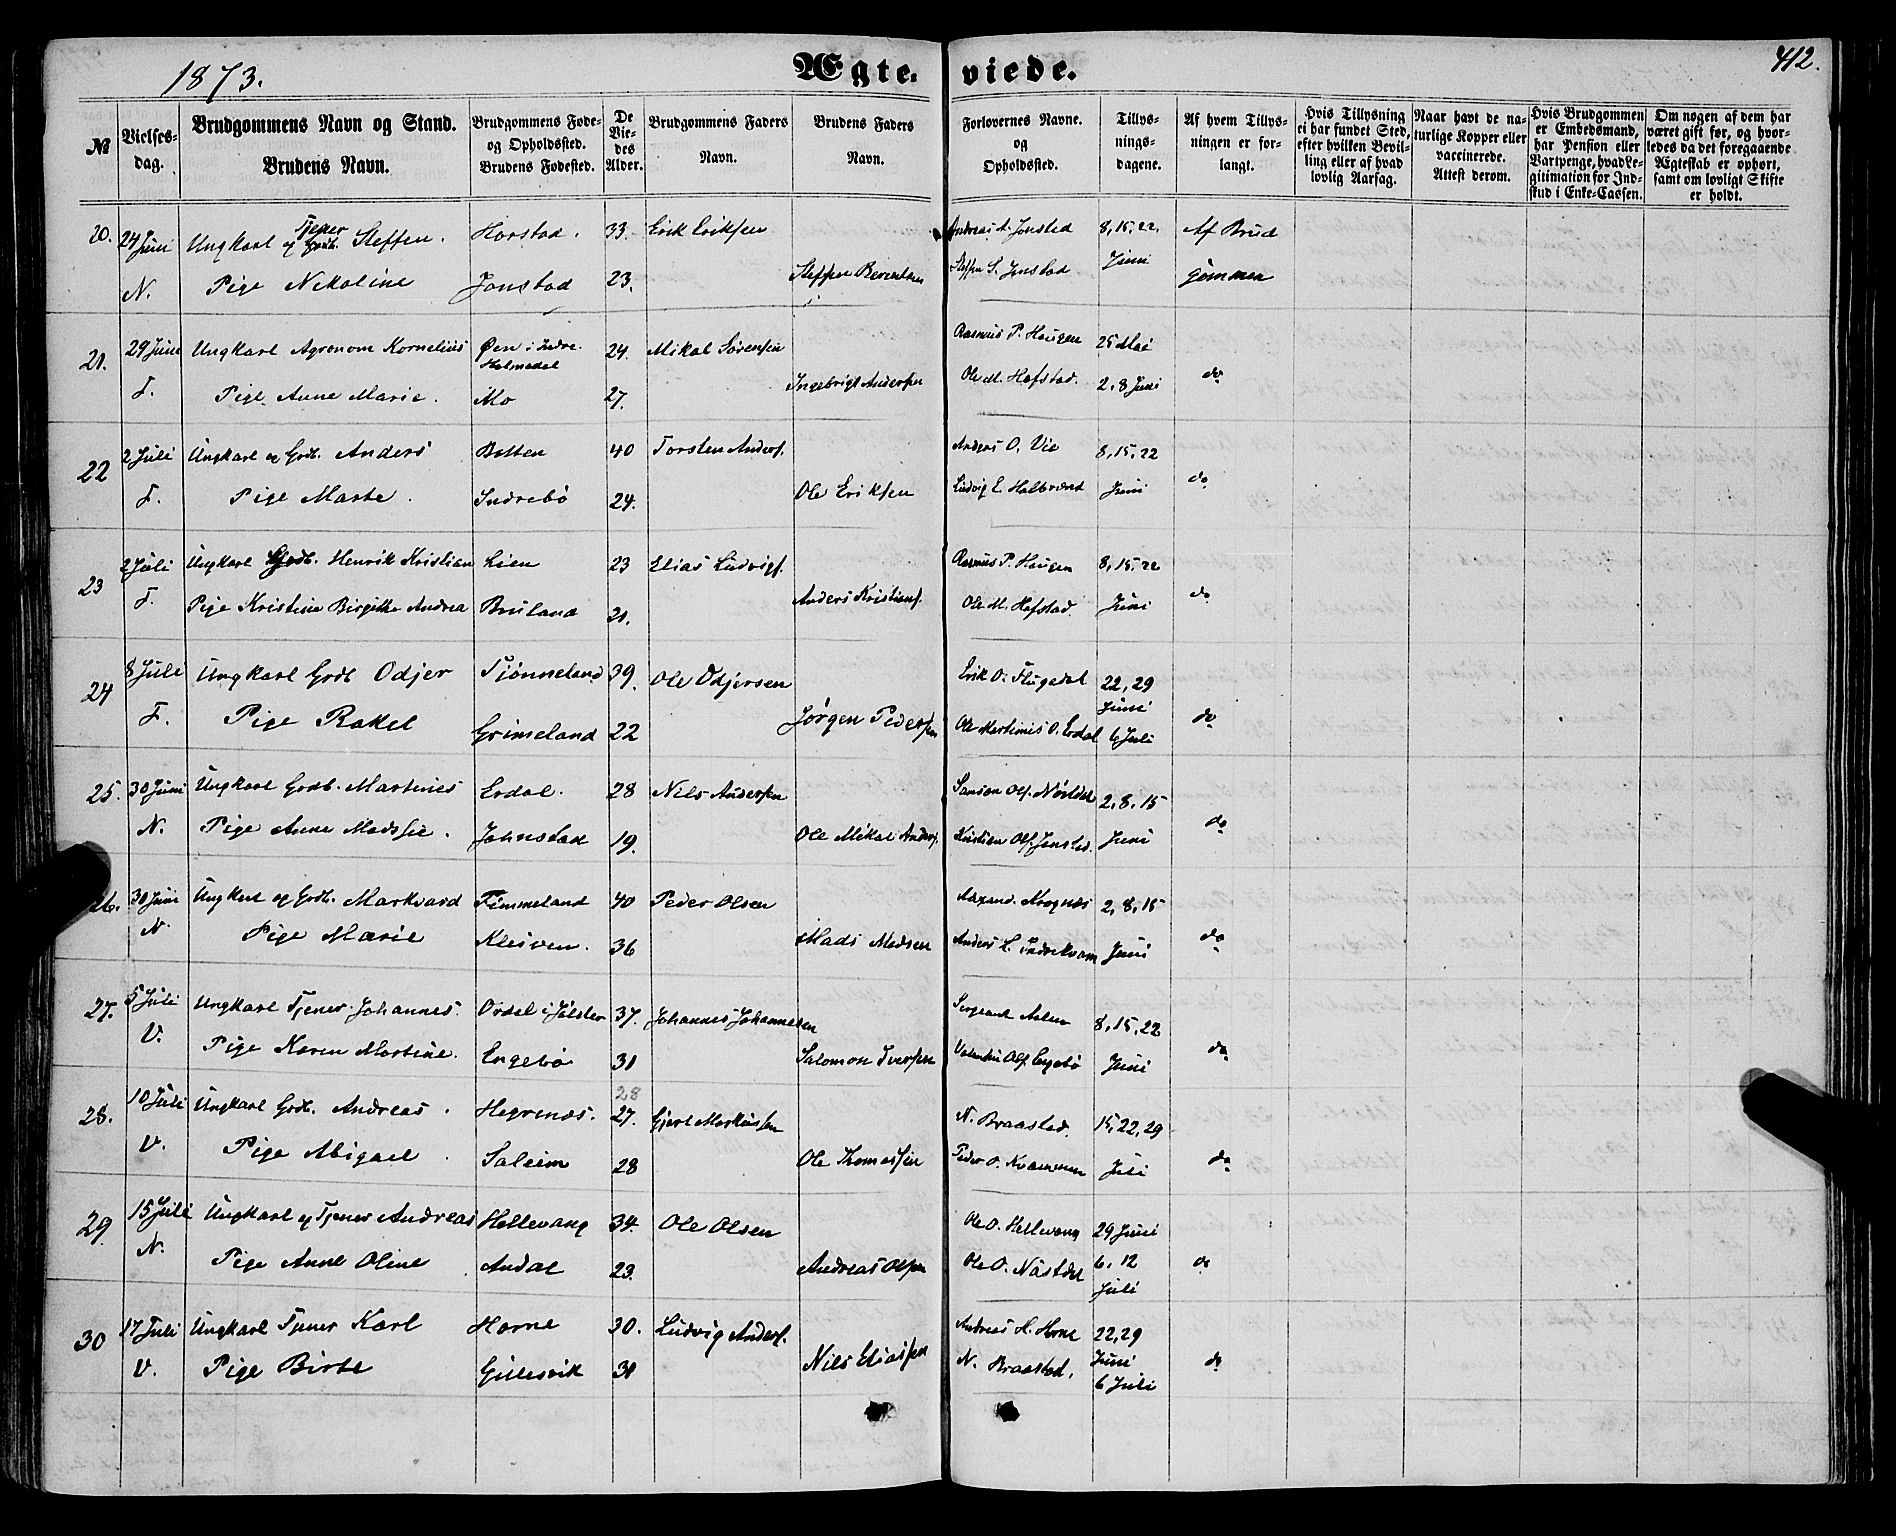 1873.
Ægteviede.
412.
№
Vielsesdag.
Brudgommens Navn og Stand.
Brudens Navn.
Brudgommens Føde- og Opholdssted.
Brudens Fødested.
De Viedes Alder.
Brudgommens Faders Navn.
Brudens Faders Navn.
Forlovernes Navne. og Opholdssted.
Tillysningsdagene.
Af hvem Tillysningen er forlangt.
Hvis Tillysning ei har fundet Sted, efter hvilken Bevilling eller af hvad lovlig Aarsag.
Naar havt de naturlige Kopper eller vaccinerede. Attest derom.
Hvis Brudgommen er Embedsmand, har Pension eller Vartpenge, hvad Legitimation for Indskud i Enke-Cassen.
Om nogen af dem har været gift før, og hvorledes da det foregaaende Ægteskab er ophørt, samt om lovligt Skifte er holdt.
20. 24 Juni Ungkarl og Tjener Steffen. Horstad. 33. Erik Eriksen Andreas A. Jonstad 8,15,22 Juni Af Brudgommen
N. Pige Nikoline Jonstad 23. Steffen Berentsen Steffen S. Jonstad
21. 29 Juni Ungkarl Agronom Kornelius Øen i Indre Holmedal 24. Mikal Sørensen Rasmus P. Haugen 25 Mai
F. Pige Anne Marie. Mo 27. Ingebrigt Andersen Ole M. Hafstad. 2,8 Juni do
22 2 Juli Ungkarl og Grdb. Anders Botten 40 Torsten Anders. Anders O. Vie 8,15,22
F. Pige Marte. Indrebø 24. Ole Eriksen Ludvig E. Halbrend Juni do
23 2 Juli Ungkarl Grdb. Henrik Kristian Lien 23 Elias Ludvigs. Rasmus P. Haugen 8,15,22
F. Pige Kristine Birgitte Andrea Bruland 21. Anders Kristians. Ole M. Hafstad. Juni do
24 8 Juli Ungkarl Grdb Odjer Tjønneland 39. Ole Odjersen Erik O. Flugedal 22,29 Juni
F. Pige Rakel Grimseland 22 Jørgen Pedersen Ole Martinus O. Erdal 6 Juli do
25. 30 Juni Ungkarl Grdb. Martinus Erdal. 28 Nils Andersen 2,8,15
N. Pige Anne Madssie. Johnstad 19. Ole Mikal Anders. Kristian Ols. Jonstad. Juni do
26. 30 Juni Ungkarl og Grdb. Markvard Timmeland 40 Peder Olsen 2,8,15
N. Pige Marie Kleiven. 36 Mads Madsen Juni do
27. 5 Juli Ungkarl Tjener Johannes. Ordal i Jølster 37. Johannes Johannesen Sergeant Aalen 8,15,22
V. Pige Karen Martine. Engebø 31 Salomon Iversen Valentin Ols. Engebø Juni do
28. 10 Juli Ungkarl Grdb. Andreas. Hegrenæs. 28 27. Gjert Markussen N. Braastad. 15,22,29
V. Pige Abigael. Saleim 28 Ole Thomassen Peder O. Juli do
29. 15 Juli Ungkarl og Tjener Andreas Hellevang 34. Ole Olsen Ole O. Hellevang 29 Juni
N. Pige Anne Oline Andal 23. Andreas Olsen Ole O. Nästdal 6,12 Juli do
30 17 Juli Ungkarl Tjener Karl Horne 30. Ludvig Anders. Andreas H. Horne 22,29 Juni
V. Pige Birte Gillesvik 31 Nils Eliassen N. Braastad, 6 Juli do